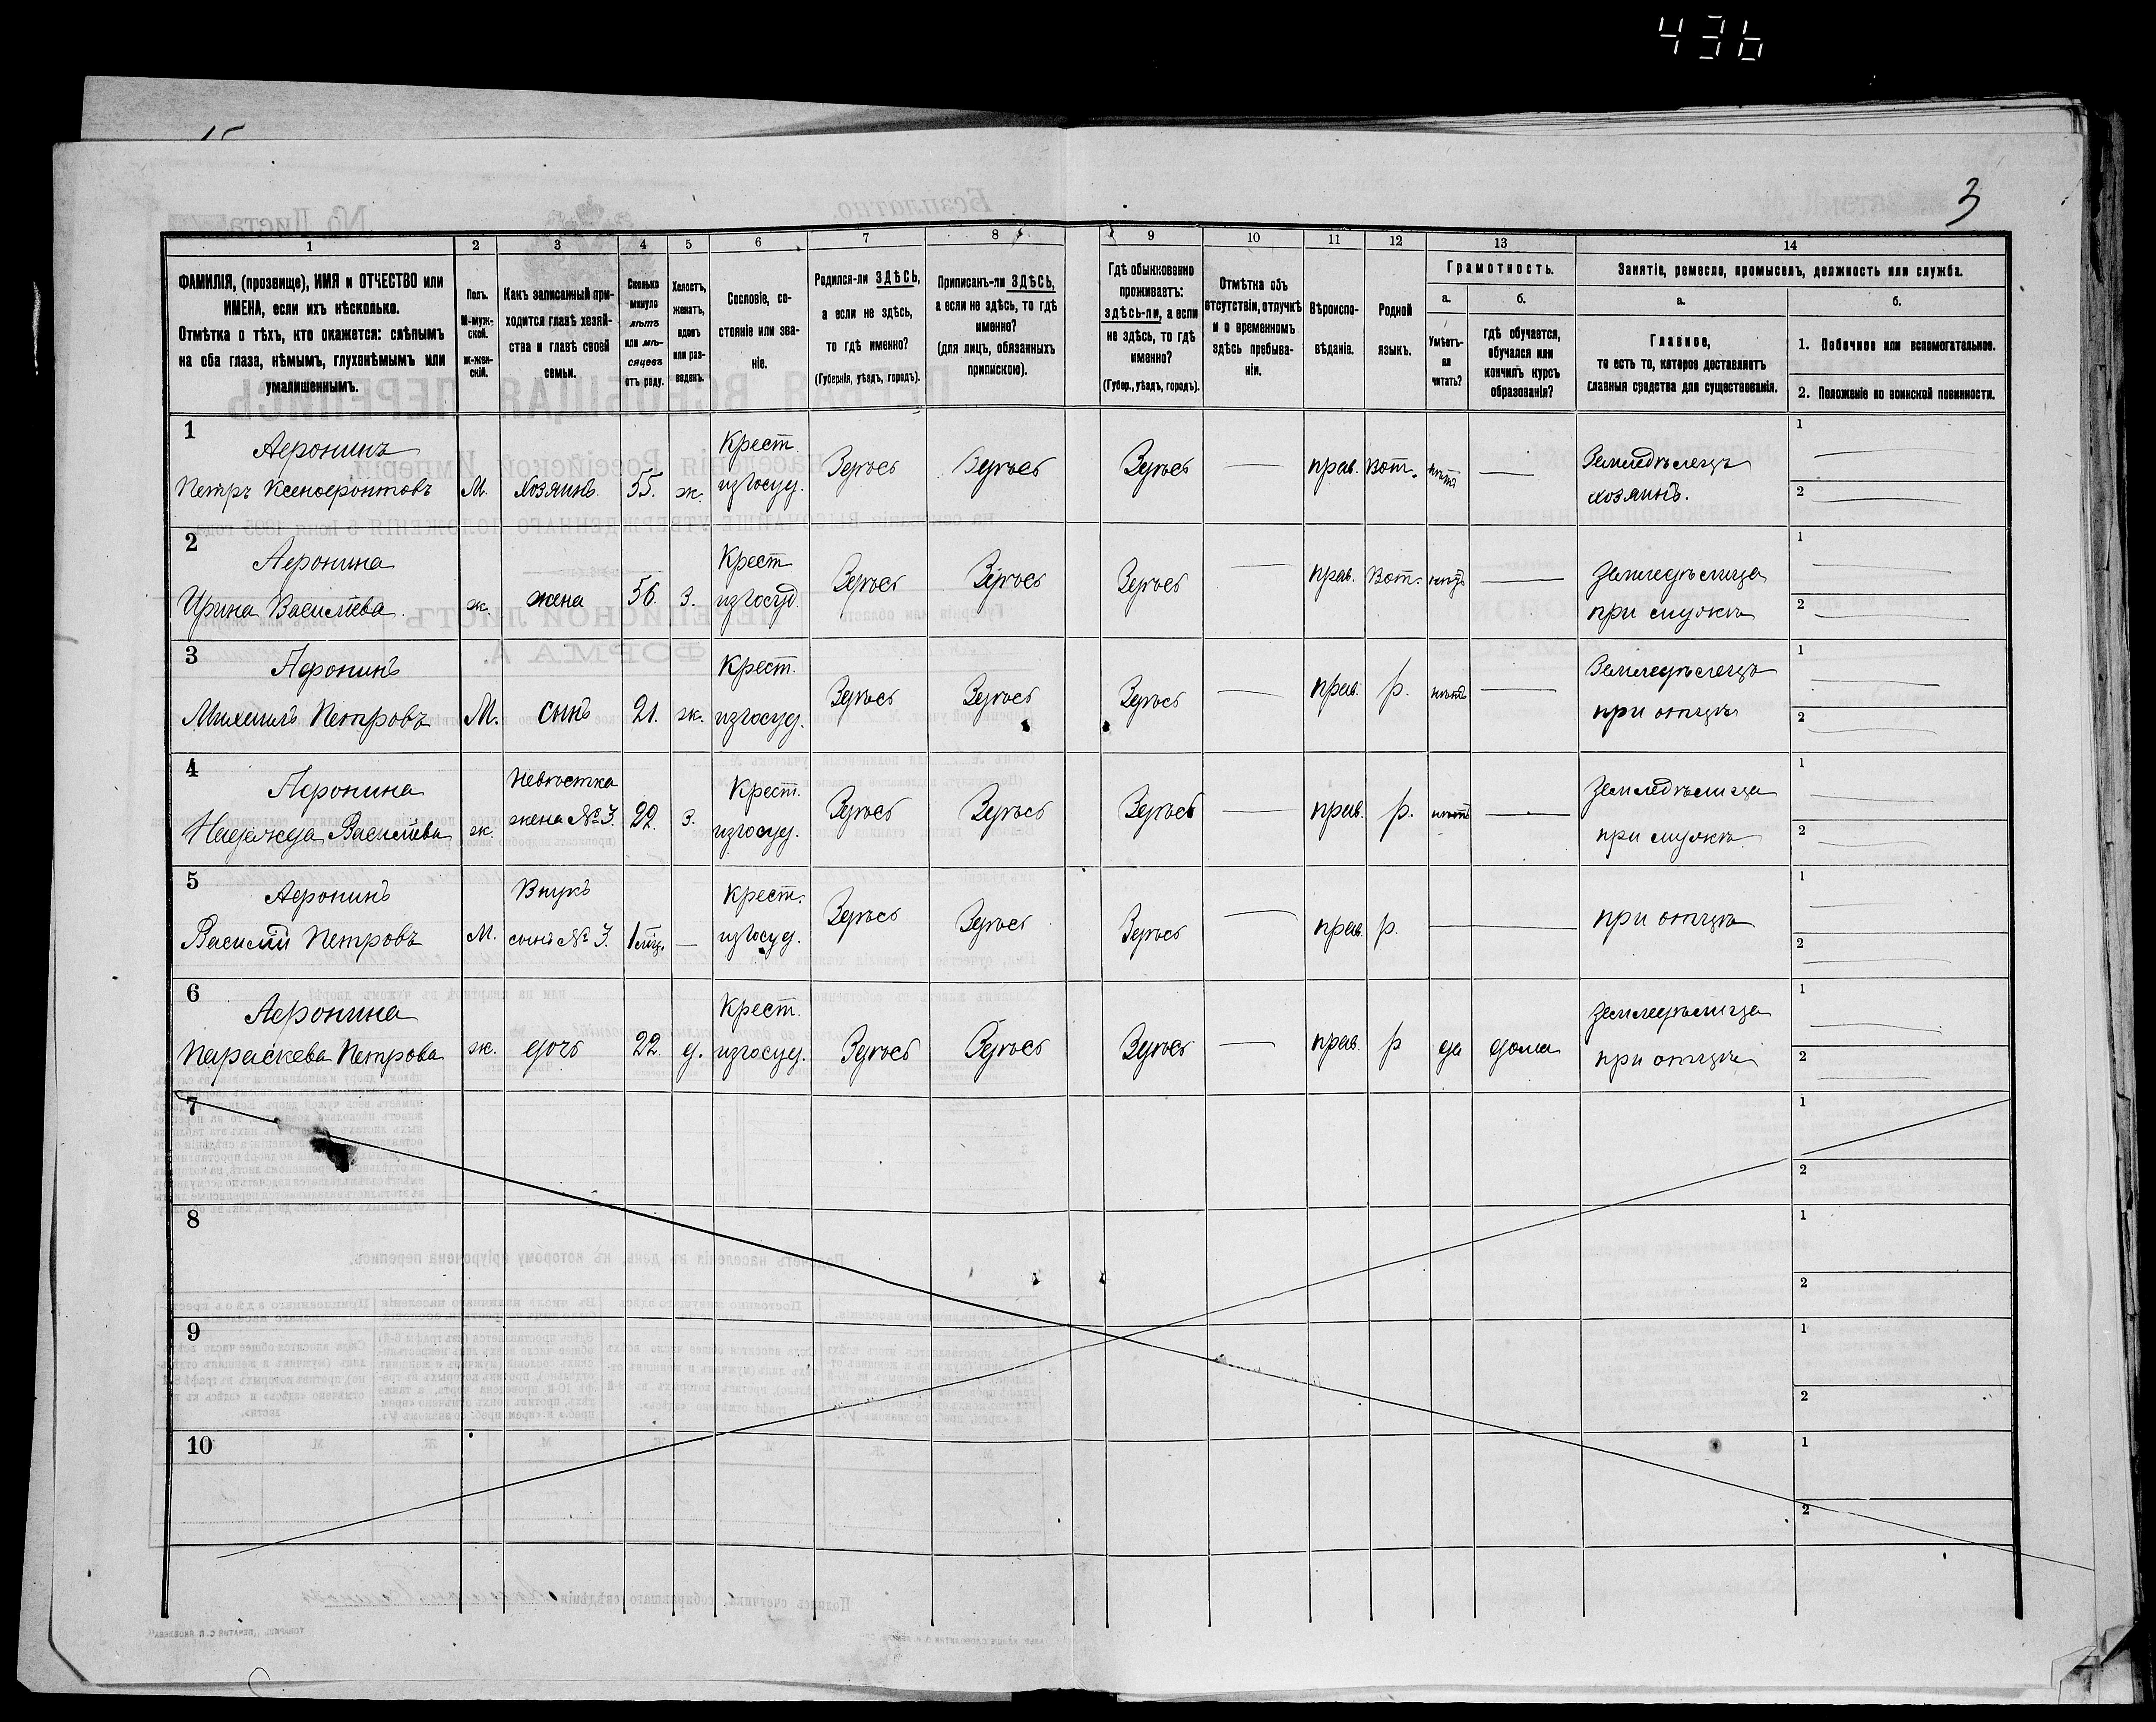 436
3
1 2 3 4 5 6 7 8 9 10 11 12 13 14
ФАМИЛІЯ, (прозвище), ИМЯ и ОТЧЕСТВО или ИМЕНА, если ихъ нѣсколько.
Отмѣтка о тѣхъ, кто окажется: слѣпымъ на оба глаза, нѣмымъ, глухонѣмымъ или умалишеннымъ.
Полъ. М-мужской. Ж-женскій.
Какъ записанный приходится главѣ хозяйства и главѣ своей семьи.
Сколько минуло лѣтъ или мѣсяцевъ отъ роду.
Холостъ, женатъ, вдовъ или разведенъ.
Сословіе, состояніе или званіе.
Родился-ли ЗДѢСЬ, а если не здѣсь, то гдѣ именно? (Губернія, уѣздъ, городъ).
Приписанъ-ли ЗДѢСЬ, а если не здѣсь, то гдѣ именно? (для лицъ, обязанныхъ припискою).
Гдѣ обыкновенно проживаетъ: здѣсь-ли, а если не здѣсь, то гдѣ именно? (Губер., уѣздъ, городъ).
Отмѣтка объ отсутствіи, отлучкѣ и о временномъ здѣсь пребываніи.
Вѣроисповѣданіе.
Родной языкъ.
Грамотность.
а. Умѣетъ-ли читать?
б. гдѣ обучается, обучался или кончилъ курсъ образованія?
Занятіе, ремесло, промыселъ, должность или служба.
а. Главное, то есть то, которое доставляетъ главныя средства для существованія.
б.
1. Побочное или вспомогательное.
2. Положеніе по воинской повинности.
1 Аѳронинъ Крест 1
Петръ Ксенофонтовъ М. Хозяинъ. 55. ж. изъ госуд. Здѣсь Здѣсь Здѣсь — прав. Вот. нѣтъ — Земледѣлецъ хозяинъ. 2
2 Аѳронина Крест 1
Ирина Васильева. ж. жена 56. з. изъ госуд. Здѣсь Здѣсь Здѣсь — прав. Вот. нѣтъ — Земледѣлица при мужѣ 2
3 Аѳронинъ Крест. 1
Михаилъ Петровъ М. сынъ 21. ж. изъ госуд. Здѣсь Здѣсь Здѣсь — прав. р. нѣтъ — Земледѣлецъ при отцѣ 2
4 Аѳронина Невѣстка Крест. 1
Надежда Васильева ж. жена № 3. 22. з. изъ госуд. Здѣсь Здѣсь Здѣсь — прав. р. нѣтъ — Земледѣлица при мужѣ. 2
5 Аѳронинъ Внукъ Крест. 1
Василій Петровъ М. сынъ № 3. 1 мѣц. — изъ госуд. Здѣсь Здѣсь Здѣсь — прав. р. — — при отцѣ 2
6 Аѳронина Крест. 1
Параскева Петрова ж. дочь 22. д. изъ госуд. Здѣсь Здѣсь Здѣсь — прав. р да дома Земледѣлица при отцѣ 2
7 1
2
8 1
2
9 1
2
10 1
2